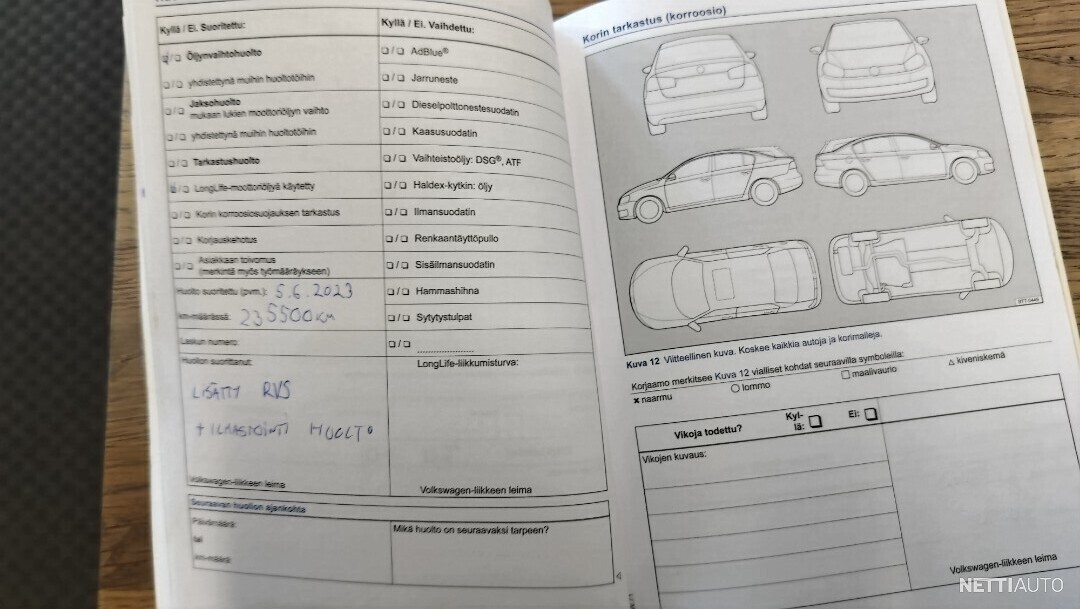 Kyllä / Ei. Suoritettu:
❑ / ❑ Öljynvaihtohuolto
❑ / ❑ yhdistettynä muihin huoltotöihin
❑ / ❑ Jaksohuolto
mukaan lukien moottoriöljyn vaihto
❑ / ❑ yhdistettynä muihin huoltotöihin
❑ / ❑ Tarkastushuolto
❑ / ❑ LongLife-moottoriöljyä käytetty
❑ / ❑ Korin korroosiosuojauksen tarkastus
❑ / ❑ Korjauskehotus
❑ / ❑ Asiakkaan toivomus
(merkintä myös työmääräykseen)
Huolto suoritettu (pvm.): 5.6.2023
km-määrässä: 235500 KM
Laskun numero:
Huollon suorittanut:
LISÄTTY RVS
+ ILMASTOINTI HUOLTO
Volkswagen-liikkeen leima
Kyllä / Ei. Vaihdettu:
❑ / ❑ AdBlue®
❑ / ❑ Jarruneste
❑ / ❑ Dieselpolttonestesuodatin
❑ / ❑ Kaasusuodatin
❑ / ❑ Vaihteistoöljy: DSG®, ATF
❑ / ❑ Haldex-kytkin: öljy
❑ / ❑ Ilmansuodatin
❑ / ❑ Renkaantäyttöpullo
❑ / ❑ Sisäilmansuodatin
❑ / ❑ Hammashihna
❑ / ❑ Sytytystulpat
❑ / ❑ ....................
LongLife-liikkumisturva:
Volkswagen-liikkeen leima
Seuraavan huollon ajankohta
Päivämäärä:
tai
km-määrä:
Mikä huolto on seuraavaksi tarpeen?
Korin tarkastus (korroosio)
Kuva 12 Viitteellinen kuva. Koskee kaikkia autoja ja korimalleja.
Korjaamo merkitsee Kuva 12 vialliset kohdat seuraavilla symboleilla:
✖ naarmu ○ lommo □ maalivaurio △ kiveniskemä
Vikoja todettu? Kyl-
lä: ❑ Ei: ❑
Vikojen kuvaus:
Volkswagen-liikkeen leima
NETTIAUTO